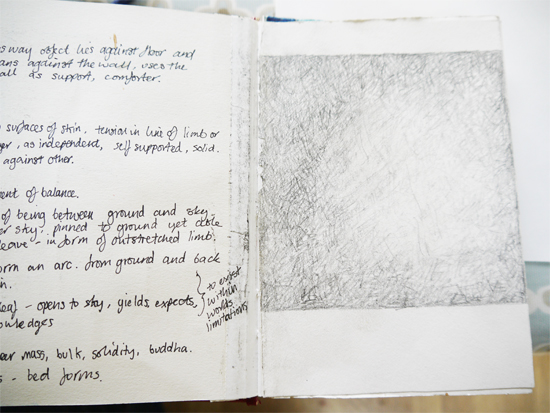 way object lies against floor and
against the wall, uses the
as support, comforter.
surfaces of skin. tension in line of limb or
, as independent, self supported, solid.
against other.
of balance.
of being between ground and sky.
stay. pinned to ground yet able
leave - in form of outstretched limb.
an arc. from ground and back
leaf - opens to stay, yields, expects,
to exist
within
worlds
limitations
mass, bulk, solidity, buddha.
- bed forms.